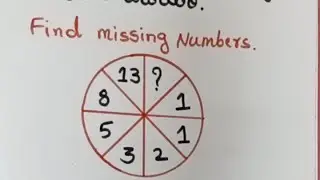 Find missing Numbers.
13 ?
8 1
5 1
3 2